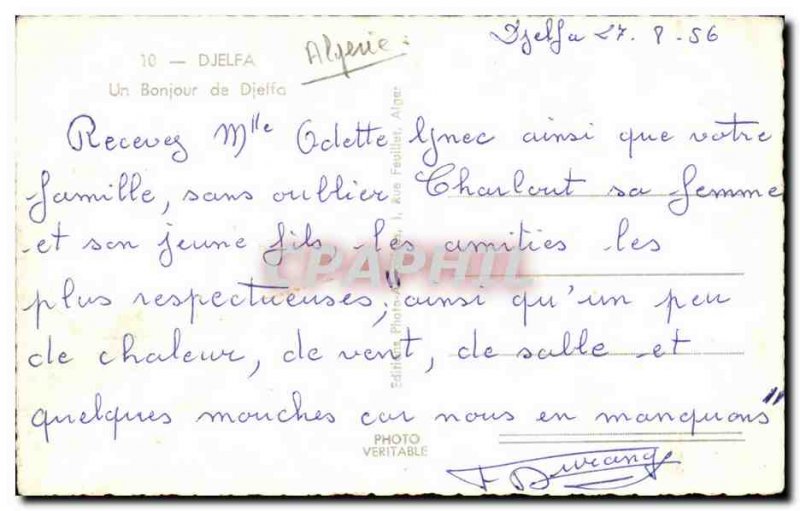 Djelfa 27. 8. 56
Algerie.
10 — DJELFA
Un Bonjour de Djelfa
Recevez Mlle Odette Ynec ainsi que votre
famille, sans oublier Charlout sa femme
et son jeune fils les amities les
plus respectueuses, ainsi qu'un peu
de chaleur, de vent, de salle et
quelques mouches car nous en manquons"
PHOTO
VERITABLE
Editions Photo-Africaines, 1, Rue Feuillet, Alger
CPAPHIL